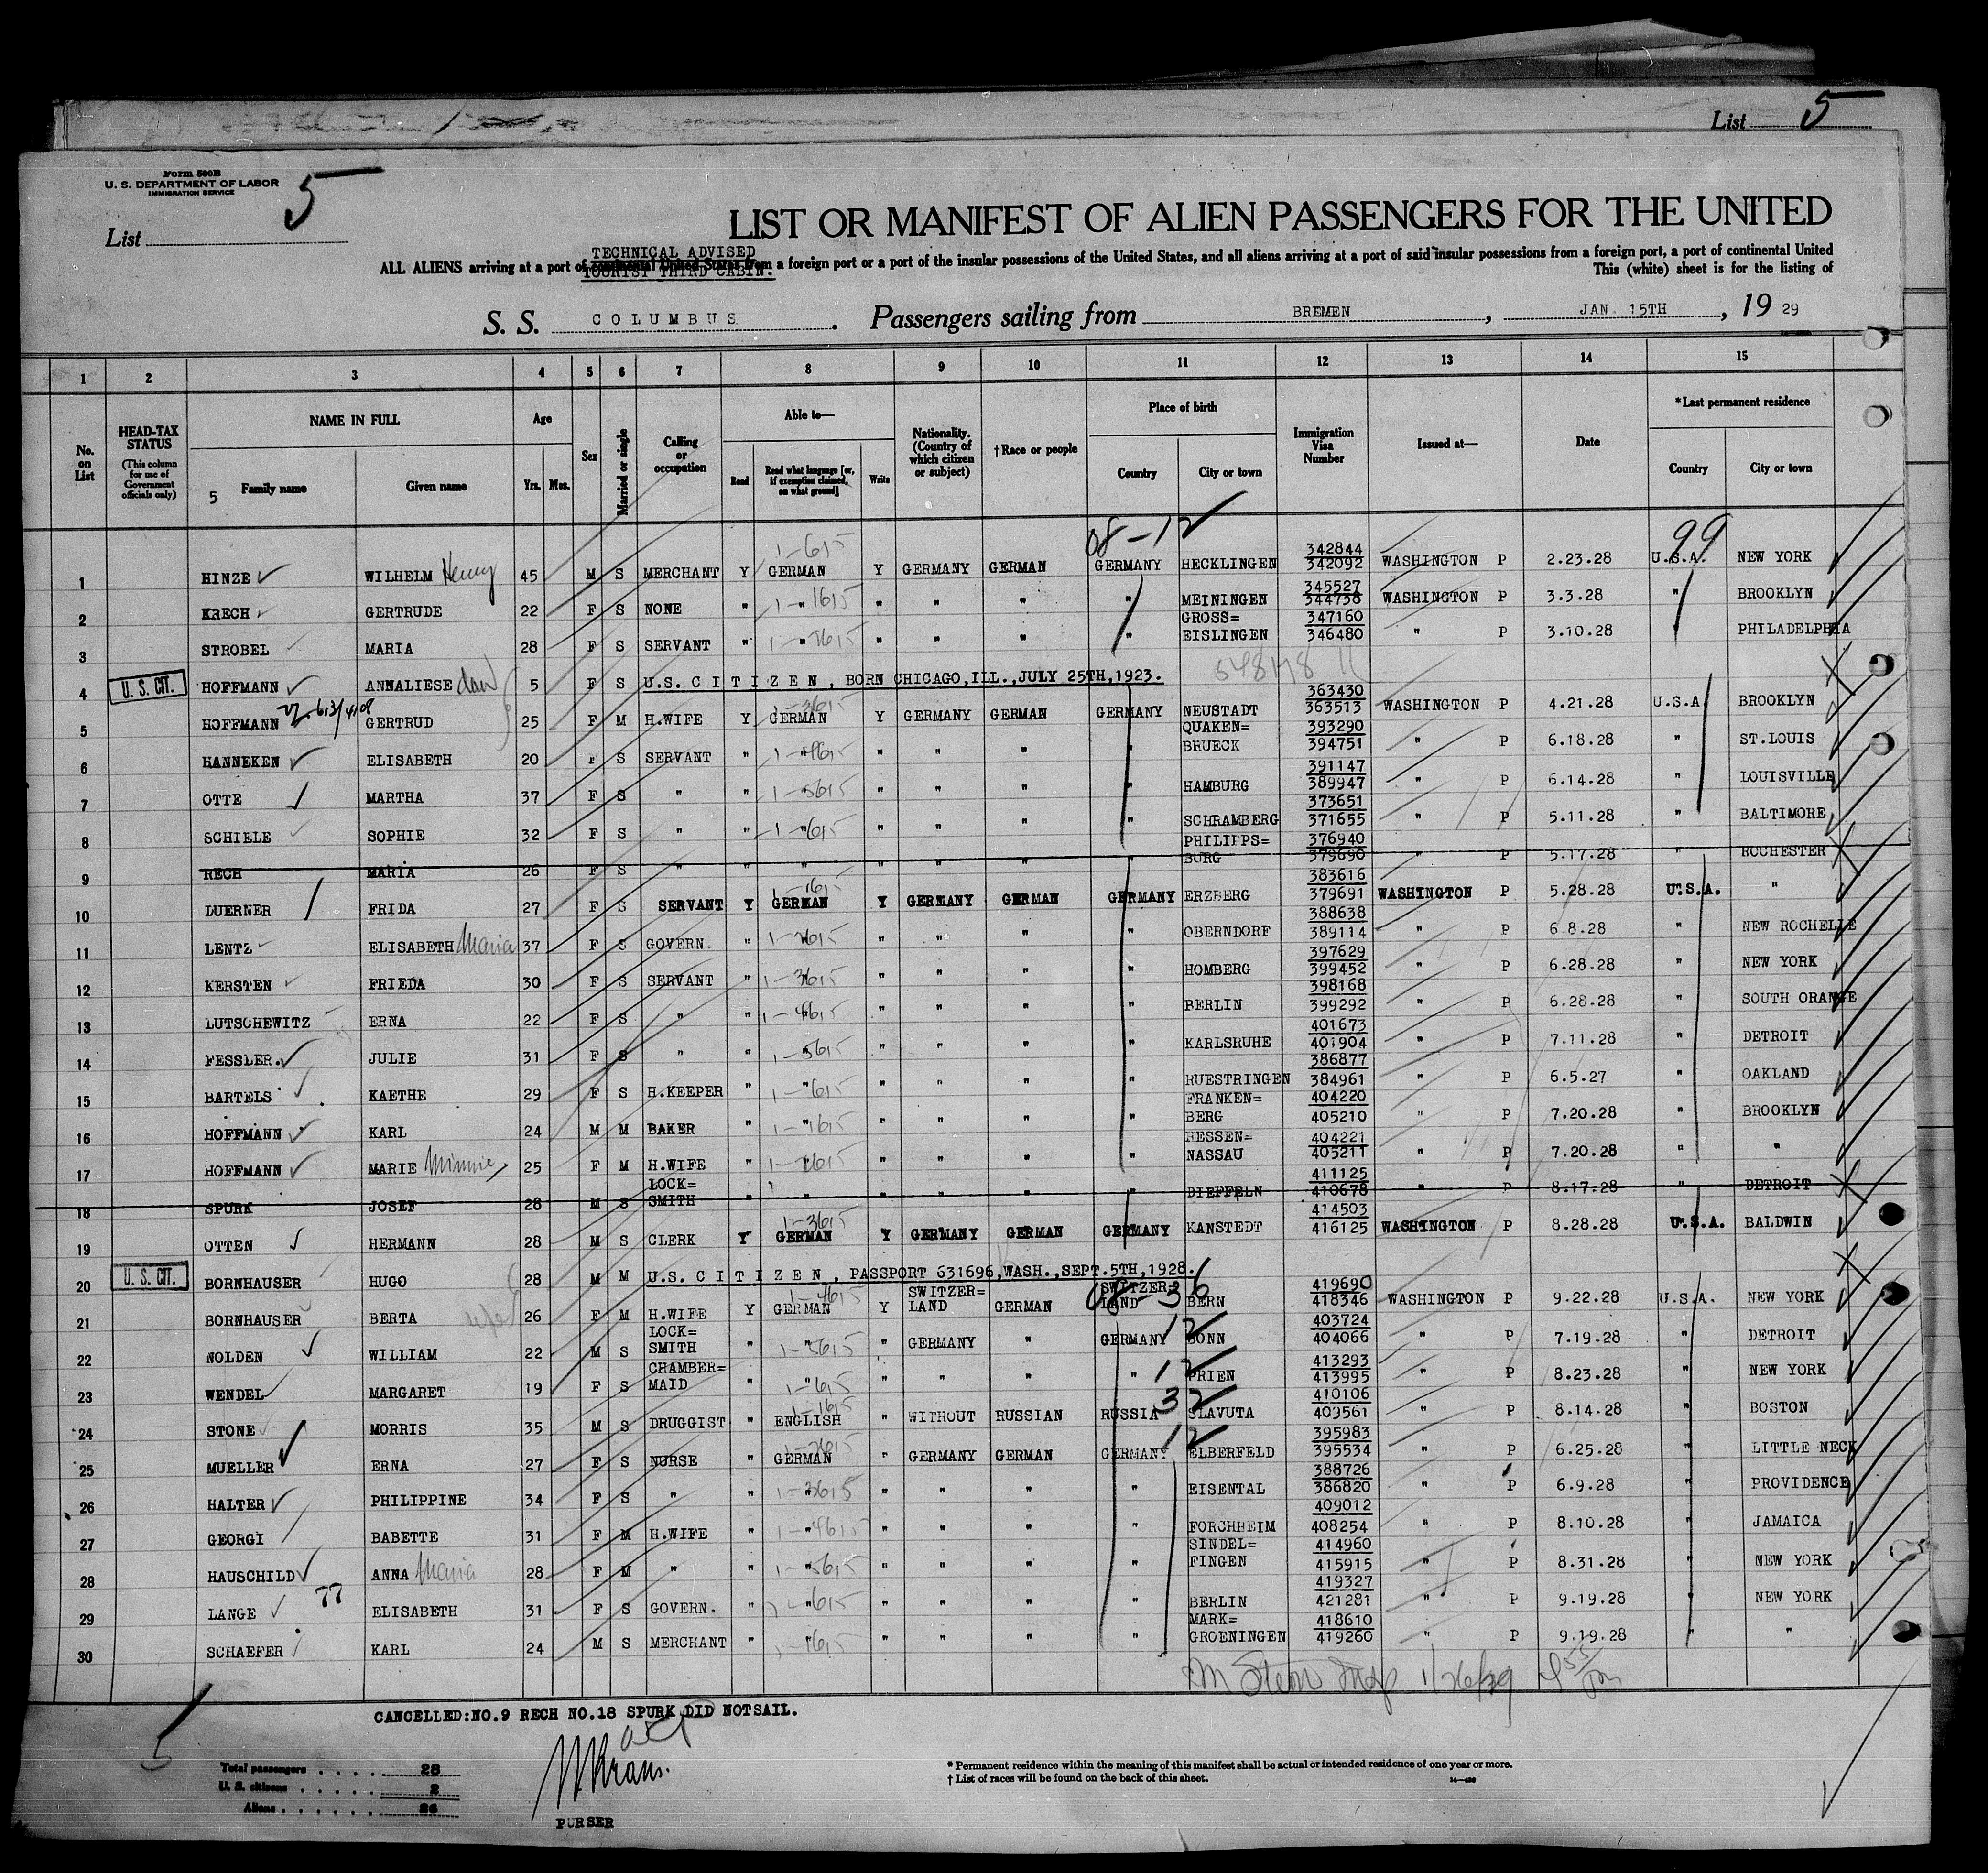 List 5
Form 500B
U. S. DEPARTMENT OF LABOR
IMMIGRATION SERVICE
List 5
LIST OR MANIFEST OF ALIEN PASSENGERS FOR THE UNITED
TECHNICAL ADVISED
ALL ALIENS arriving at a port of continental United States from a foreign port or a port of the insular possessions of the United States, and all aliens arriving at a port of said insular possessions from a foreign port, a port of continental United
TOURIST THIRD CABIN.
This (white) sheet is for the listing of
S. S. COLUMBUS. Passengers sailing from BREMEN, JAN. 15TH, 19 29
1 2 3 4 5 6 7 8 9 10 11 12 13 14 15
No. on List
HEAD-TAX STATUS (This column for use of Government officials only)
NAME IN FULL
5 Family name Given name
Age Yrs. Mos.
Sex
Married or single
Calling or occupation
Able to—
Read Read what language [or, if exemption claimed, on what ground] Write
Nationality. (Country of which citizen or subject)
†Race or people
Place of birth
Country City or town
Immigration Visa Number
Issued at—
Date
*Last permanent residence
Country City or town
08-12 99
1 HINZE WILHELM Henry 45 M S MERCHANT Y GERMAN 1-615 Y GERMANY GERMAN GERMANY HECKLINGEN 342844 342092 WASHINGTON P 2.23.28 U.S.A. NEW YORK
2 KRECH GERTRUDE 22 F S NONE " " 1-1615 " " " " MEININGEN 345527 344738 WASHINGTON P 3.3.28 " BROOKLYN
3 STROBEL MARIA 28 F S SERVANT " " 1-2615 " " " " GROSS= EISLINGEN 347160 346480 " P 3.10.28 " PHILADELPHIA
4 U. S. CIT. HOFFMANN ANNALIESE 5 F S U.S. CITIZEN, BORN CHICAGO,ILL.,JULY 25TH,1923.
5 HOFFMANN GERTRUD 25 F M H.WIFE Y GERMAN 1-3615 Y GERMANY GERMAN GERMANY NEUSTADT 363430 363513 WASHINGTON P 4.21.28 U.S.A BROOKLYN
6 HANNEKEN ELISABETH 20 F S SERVANT " " 1-4615 " " " " QUAKEN= BRUECK 393290 394751 " P 6.18.28 " ST.LOUIS
7 OTTE MARTHA 37 F S " " " 1-5615 " " " " HAMBURG 391147 389947 " P 6.14.28 " LOUISVILLE
8 SCHIELE SOPHIE 32 F S " " " 1-615 " " " " SCHRAMBERG 373651 371655 " P 5.11.28 " BALTIMORE
9 RECH MARIA 26 F S " " " " " " " PHILIPPS= BURG 376940 379690 " P 5.17.28 " ROCHESTER
10 DUERNER FRIDA 27 F S SERVANT Y GERMAN 1-1615 Y GERMANY GERMAN GERMANY ERZBERG 383616 379691 WASHINGTON P 5.28.28 U.S.A. "
11 LENTZ ELISABETH Maria 37 F S GOVERN. " " 1-2615 " " " " OBERNDORF 388638 389114 " P 6.8.28 " NEW ROCHELLE
12 KERSTEN FRIEDA 30 F S SERVANT " " 1-3615 " " " " HOMBERG 397629 399452 " P 6.28.28 " NEW YORK
13 LUTSCHEWITZ ERNA 22 F S " " " 1-4615 " " " " BERLIN 398168 399292 " P 6.28.28 " SOUTH ORANGE
14 FESSLER. JULIE 31 F S " " " 1-5615 " " " " KARLSRUHE 401673 401904 " P 7.11.28 " DETROIT
15 BARTELS KAETHE 29 F S H.KEEPER " " 1-615 " " " " RUESTRINGEN 386877 384961 " P 6.5.27 " OAKLAND
16 HOFFMANN KARL 24 M M BAKER " " 1-1615 " " " " FRANKEN= BERG 404220 405210 " P 7.20.28 " BROOKLYN
17 HOFFMANN MARIE Minnie 25 F M H.WIFE " " 1-2615 " " " " HESSEN= NASSAU 404221 405211 " P 7.20.28 " "
18 SPURK JOSEF 28 M S LOCK= SMITH " " " " " " DIEFFELN 411125 410678 " P 8.17.28 " DETROIT
19 OTTEN HERMANN 28 M S CLERK Y GERMAN 1-3615 Y GERMANY GERMAN GERMANY KANSTEDT 414503 416125 WASHINGTON P 8.28.28 U.S.A. BALDWIN
20 U. S. CIT. BORNHAUSER HUGO 28 M M U.S. CITIZEN, PASSPORT 631696,WASH.,SEPT.5TH,1928.
21 BORNHAUSER BERTA wife 26 F M H.WIFE Y GERMAN 1-4615 Y SWITZER= LAND GERMAN SWITZER= LAND 08-36 BERN 419690 418346 WASHINGTON P 9.22.28 U.S.A. NEW YORK
22 NOLDEN WILLIAM 22 M S LOCK= SMITH " " 1-5615 " GERMANY " GERMANY 12 BONN 403724 404066 " P 7.19.28 " DETROIT
23 WENDEL MARGARET 19 F S CHAMBER= MAID " " 1-615 " " " " 12 PRIEN 413293 413995 " P 8.23.28 " NEW YORK
24 STONE MORRIS 35 M S DRUGGIST " ENGLISH 1-1615 " WITHOUT RUSSIAN RUSSIA 32 SLAVUTA 410106 409561 " P 8.14.28 " BOSTON
25 MUELLER ERNA 27 F S NURSE " GERMAN 1-2615 " GERMANY GERMAN GERMANY 12 ELBERFELD 395983 395534 " P 6.25.28 " LITTLE NECK
26 HALTER PHILIPPINE 34 F S " " " 1-3615 " " " " EISENTAL 388726 386820 " P 6.9.28 " PROVIDENCE
27 GEORGI BABETTE 31 F M H.WIFE " " 1-4615 " " " " FORCHHEIM 409012 408254 " P 8.10.28 " JAMAICA
28 HAUSCHILD ANNA Maria 28 F M " " " 1-5615 " " " " SINDEL= FINGEN 414960 415915 " P 8.31.28 " NEW YORK
29 LANGE 77 ELISABETH 31 F S GOVERN. " " 615 " " " " BERLIN 419327 421281 " P 9.19.28 " NEW YORK
30 SCHAEFER KARL 24 M S MERCHANT " " 1-1615 " " " " MARK= GROENINGEN 418610 419260 " P 9.19.28 " "
1/26/29
CANCELLED:NO.9 RECH NO.18 SPURK DID NOTSAIL.
5
Total passengers . . . . 28
U. S. citizens . . . . . 2
Aliens . . . . . . 26
PURSER
* Permanent residence within the meaning of this manifest shall be actual or intended residence of one year or more.
† List of races will be found on the back of this sheet.